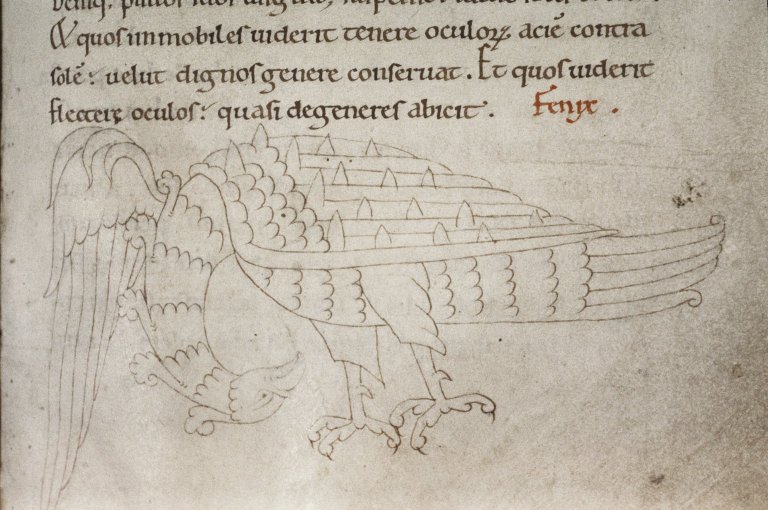 Deniq; pullos suos
Et quos inmobiles uiderit tenere oculoꝝ aciē contra
solē: uelut dignos genere conseruat. Et quos uiderit
flectere oculos: quasi degeneres abicit. Fenix.